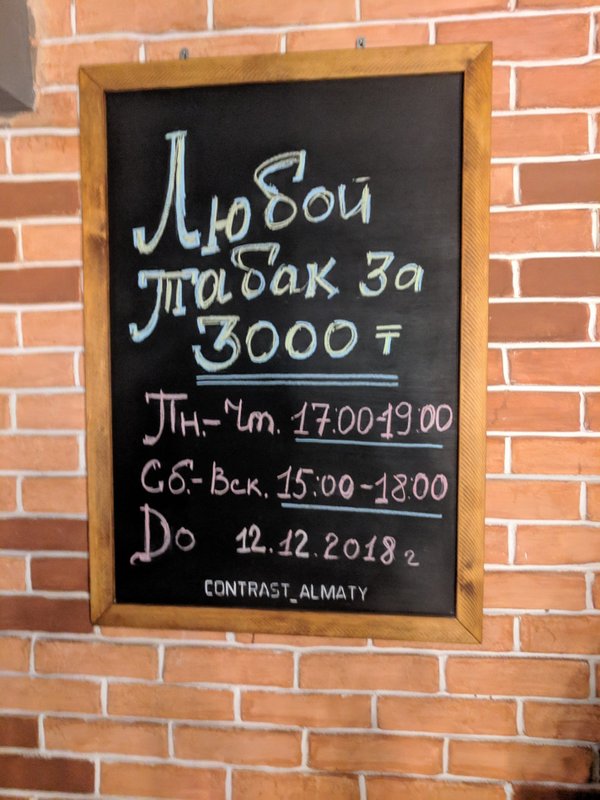 Любой
табак за
3000 ₸
Пн.-Чт. 17:00-19:00
Сб.-Вск. 15:00-18:00
До 12.12.2018г
CONTRAST_ALMATY